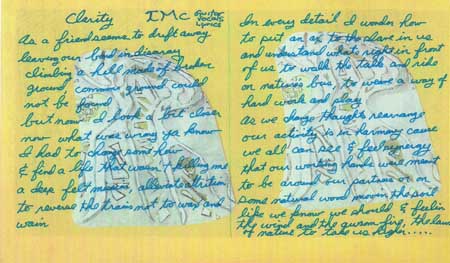 Clarity
IMC Guitar
Vocals
Lyrics
As a friend seems to drift away
leaving our bond in disarray
climbing a hill made of broken
ground, common ground could
not be found
but now I look a bit closer
now what was wrong ya know
I had to change somehow
& find a life that wasn't killing me
a deep felt mission alleviate attrition
to reverse the trains not to wax and
wain
In every detail I wonder how
to put an ax to the slave in us
and understand what's right in front
of us to walk the talk and ride
on natures bus, to weave a way of
hard work and play
As we change thoughts rearrange
our activity is in harmony cause
we all can see & feel synergy
that our working hands were meant
to be around our partners or on
some natural wood movin the soil
like we know we should & feelin
the wind and the awsom fire, the laws
of nature to take us higher.....